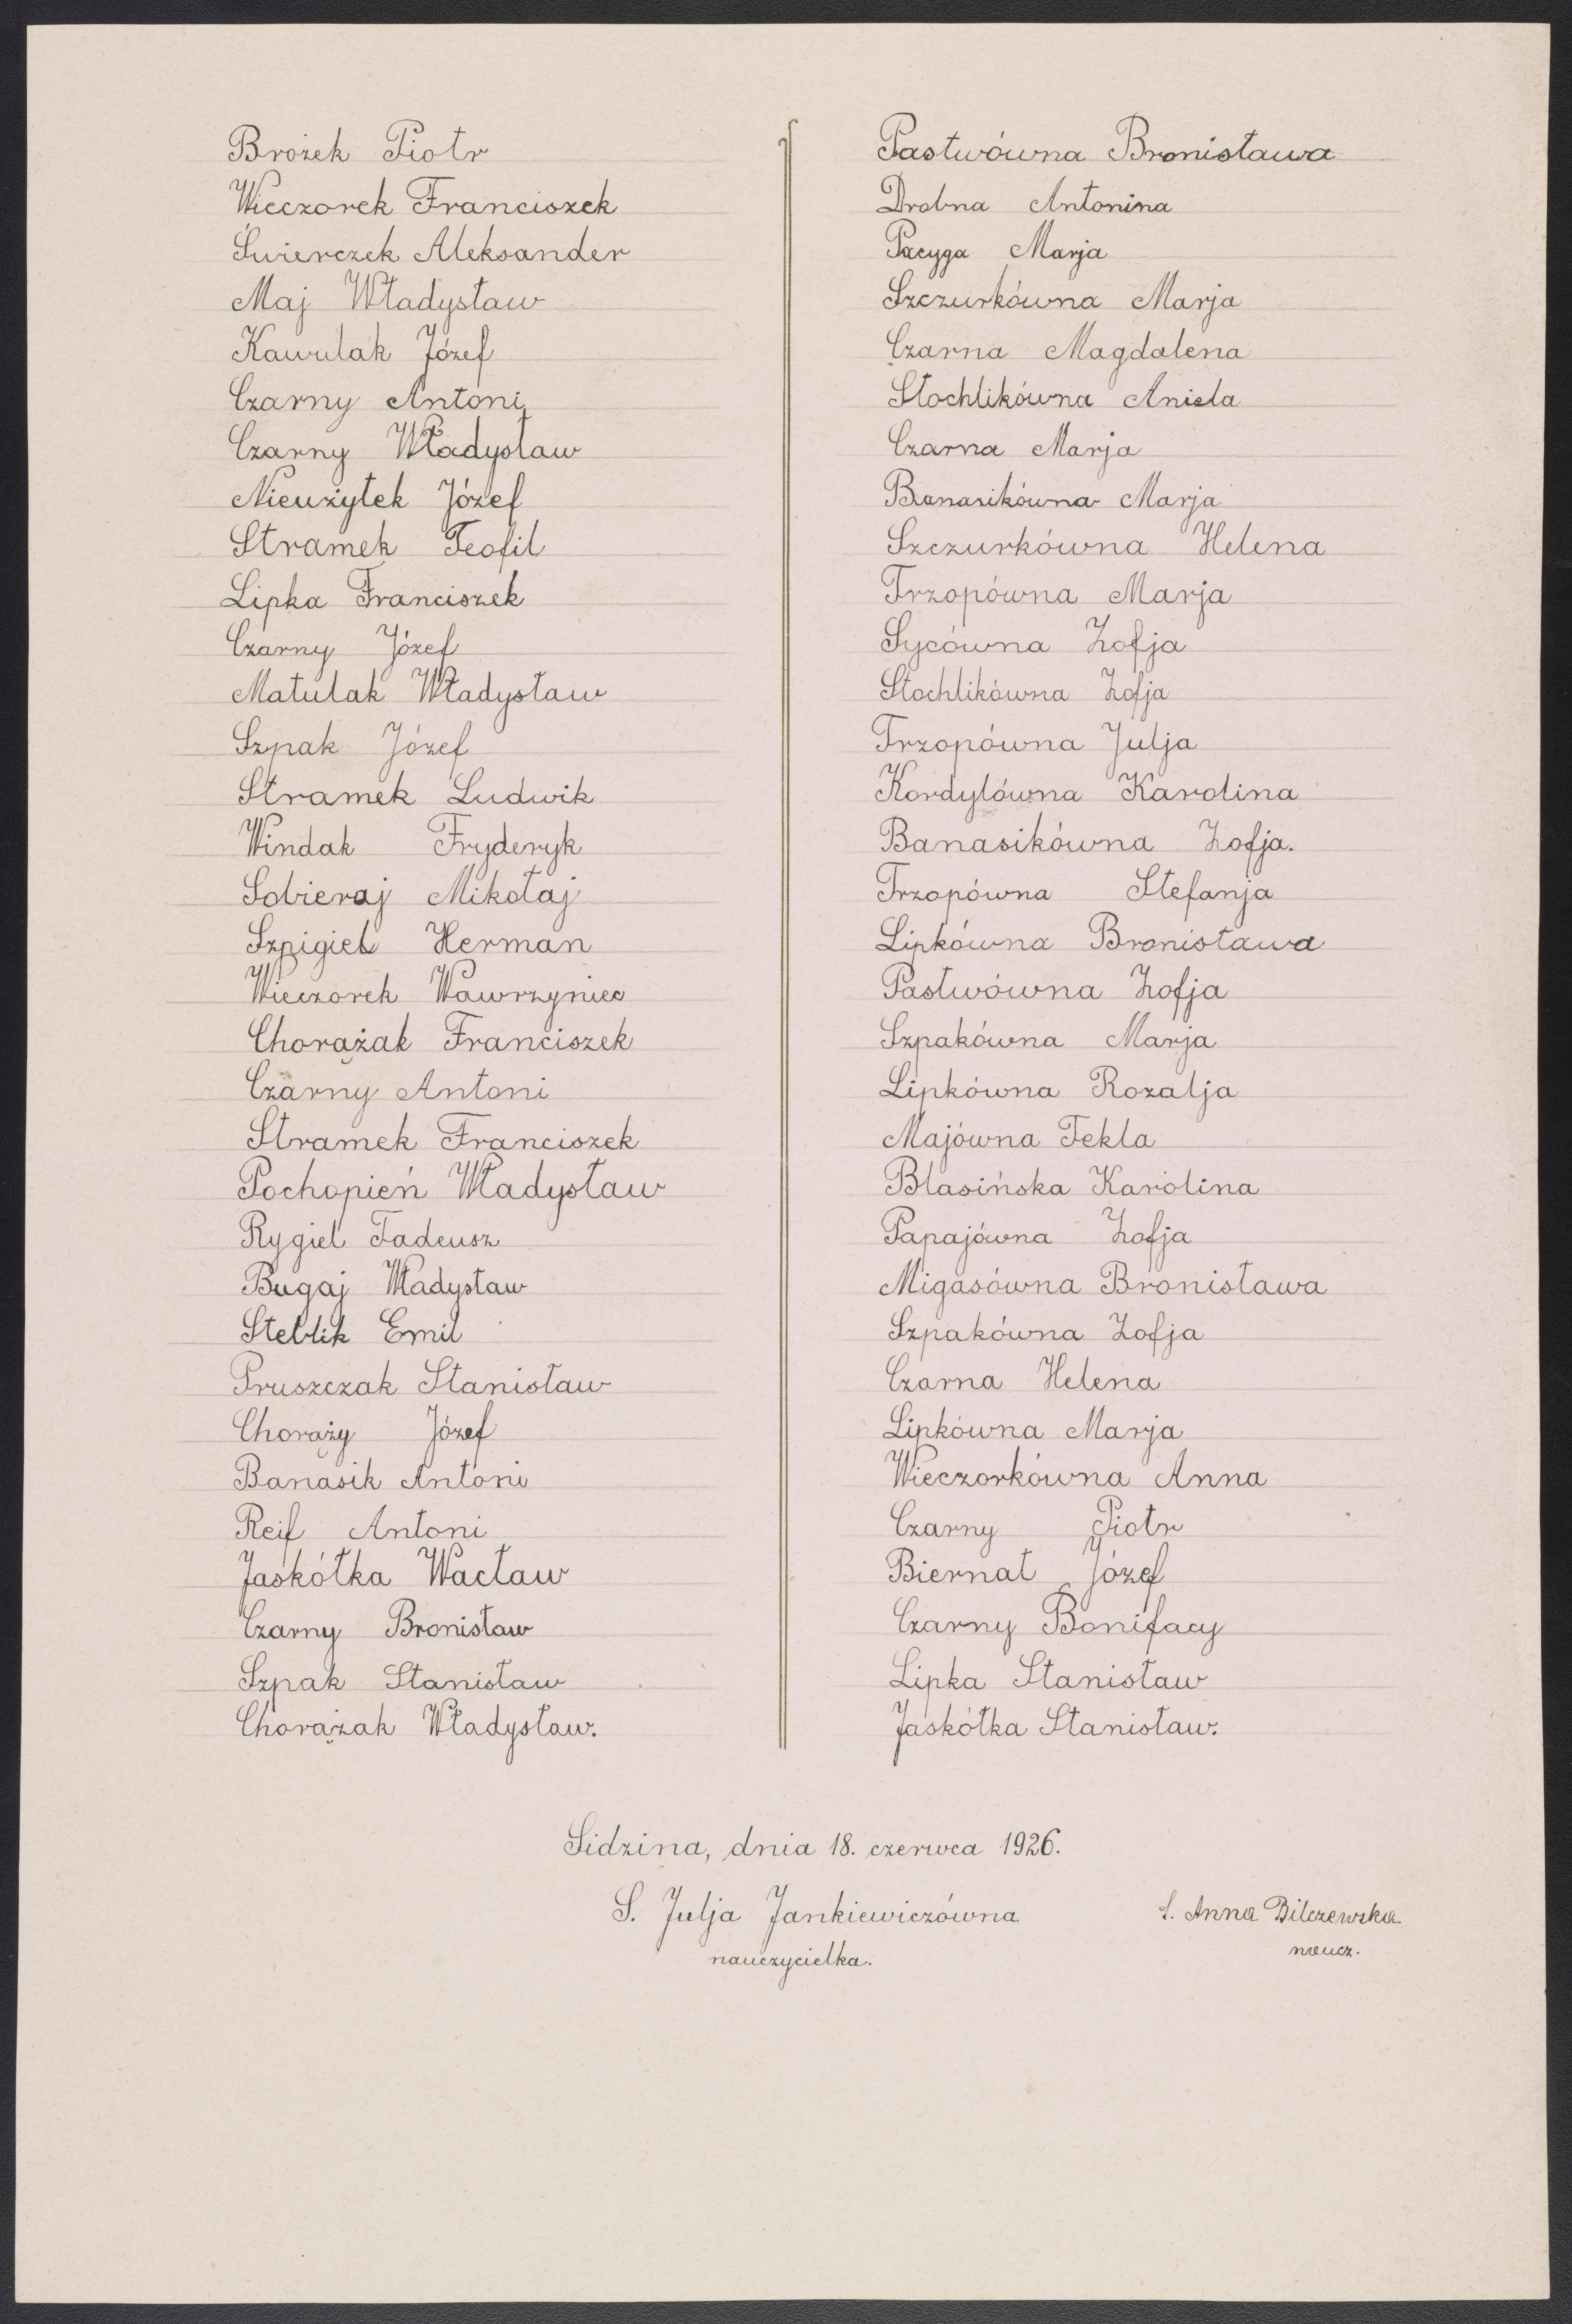 Brożek Piotr
Wieczorek Franciszek
Świerczek Aleksander
Maj Władysław
Kawulak Józef
Czarny Antoni
Czarny Władysław
Nieużytek Józef
Stramek Teofil
Lipka Franciszek
Czarny Józef
Matulak Władysław
Szpak Józef
Stramek Ludwik
Windak Fryderyk
Sobieraj Mikołaj
Szpigiel Herman
Wieczorek Wawrzyniec
Chorążak Franciszek
Czarny Antoni
Stramek Franciszek
Pochopień Władysław
Rygiel Tadeusz
Bugaj Władysław
Steblik Emil
Pruszczak Stanisław
Chorąży Józef
Banasik Antoni
Reif Antoni
Jaskółka Wacław
Czarny Bronisław
Szpak Stanisław
Chorążak Władysław.
Pastwówna Bronisława
Drobna Antonina
Pacyga Marja
Szczurkówna Marja
Czarna Magdalena
Stochlikówna Aniela
Czarna Marja
Banasikówna Marja
Szczurkówna Helena
Trzopówna Marja
Sycówna Zofja
Stochlikówna Zofja
Trzopówna Julja
Kordylówna Karolina
Banasikówna Zofja.
Trzopówna Stefanja
Lipkówna Bronisława
Pastwówna Zofja
Szpakówna Marja
Lipkówna Rozalja
Majówna Tekla
Blasińska Karolina
Papajówna Zofja
Migasówna Bronisława
Szpakówna Zofja
Czarna Helena
Lipkówna Marja
Wieczorkówna Anna
Czarny Piotr
Biernat Józef
Czarny Bonifacy
Lipka Stanisław
Jaskółka Stanisław.
Sidzina, dnia 18. czerwca 1926.
S. Julja Jankiewiczówna
nauczycielka.
S. Anna Bilczewska
naucz.